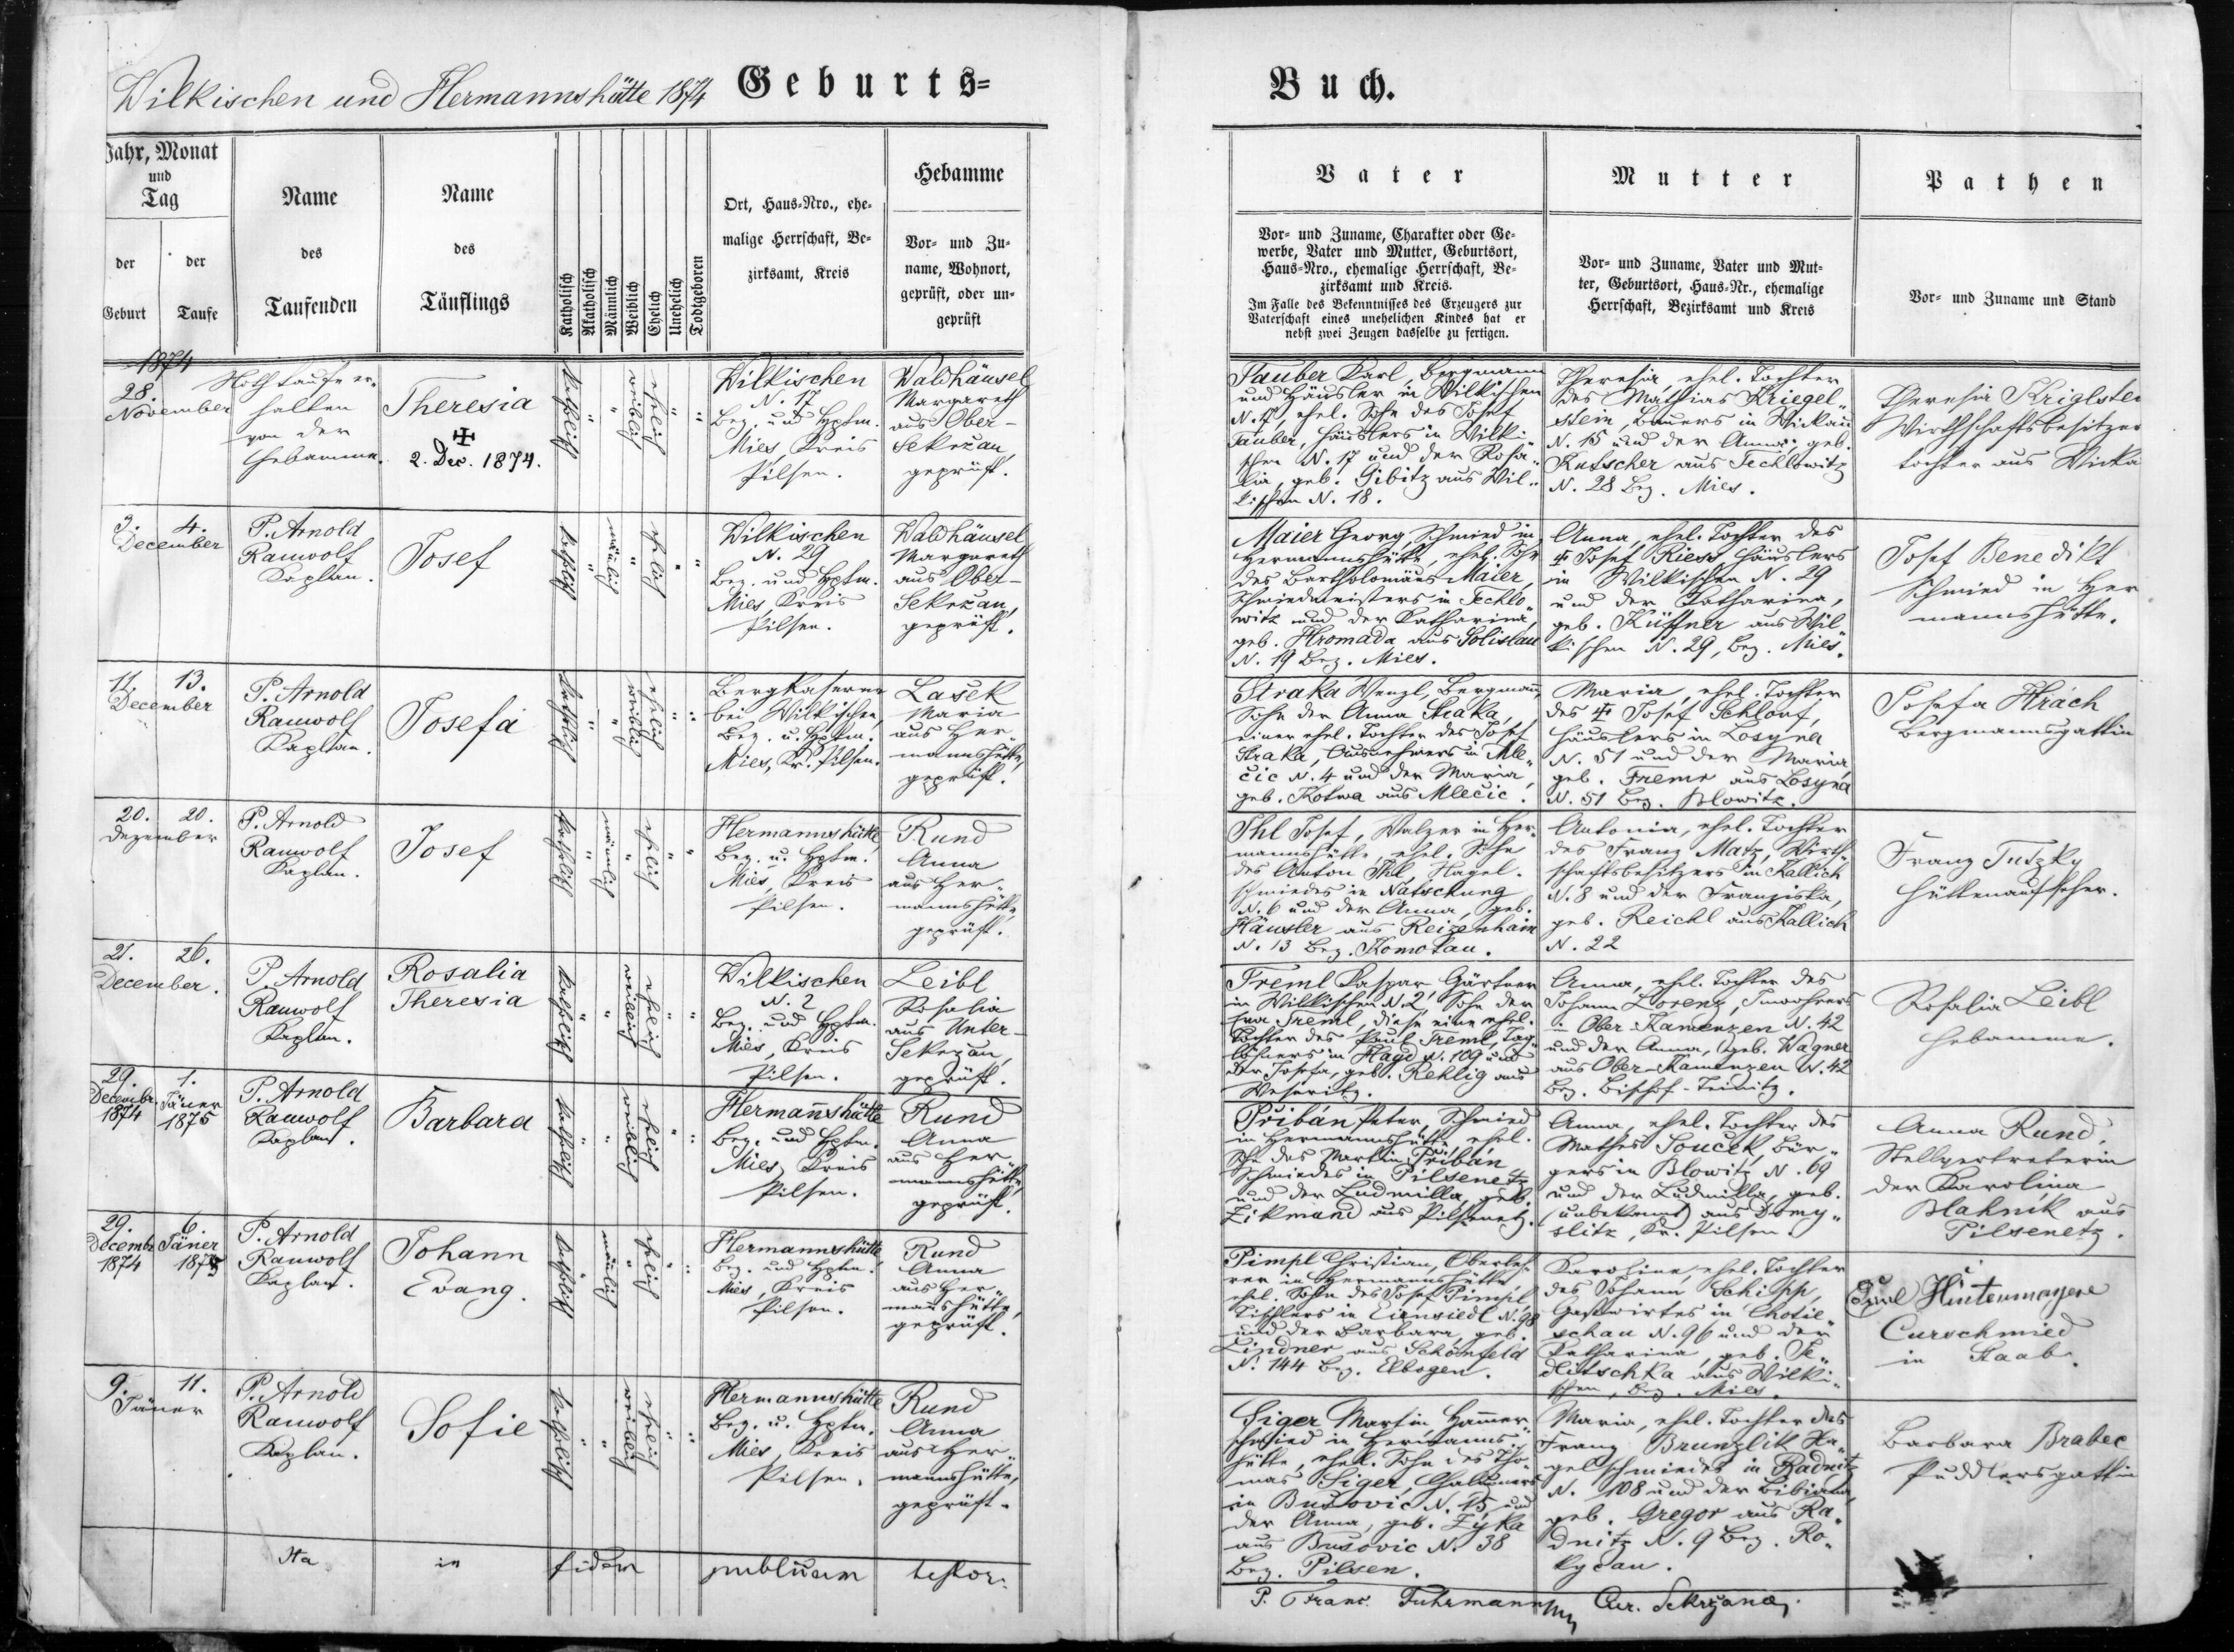 Wilkischen und Hermannshütte 1874 Geburts=
Buch.
Jahr, Monat
und
Tag
der
Geburt
der
Taufe
Name
des
Taufenden
Name
des
Täuflings
Katholisch
Akatholisch
Männlich
Weiblich
Ehelich
Unehelich
Todtgeboren
Ort, Haus=Nro., ehe=
malige Herrschaft, Be=
zirksamt, Kreis
Hebamme
Vor= und Zu=
name, Wohnort,
geprüft, oder un=
geprüft
Vater
Vor= und Zuname, Charakter oder Ge=
werbe, Vater und Mutter, Geburtsort,
Haus=Nro., ehemalige Herrschaft, Be=
zirksamt und Kreis.
Im Falle des Bekenntnisses des Erzeugers zur
Vaterschaft eines unehelichen Kindes hat er
nebst zwei Zeugen dasselbe zu fertigen.
Mutter
Vor= und Zuname, Vater und Mut=
ter, Geburtsort, Haus=Nr., ehemalige
Herrschaft, Bezirksamt und Kreis
Pathen
Vor= und Zuname und Stand
1874
28.
November
Nothtaufe er=
halten
von der
Hebamme.
Theresia
2. Dec. 1874.
katholisch
weiblich
ehelich
Wilkischen
N. 17
Bez. und Hptm.
Mies, Kreis
Pilsen.
Waldhäusel
Margareth
aus Ober-
Sekeržan,
geprüft.
Tauber Karl, Bergmann
und Häusler in Wilkischen
N. 17, ehel. Sohn des Josef
Tauber, Häuslers in Wilki=
schen N. 17 und der Rosa=
lia, geb. Gibitz aus Wil=
kischen N. 18.
Theresia, ehel. Tochter
des Mathias Kriegel=
stein, Bauers in Wickau
N. 15 und der Anna, geb.
Kutscher aus Techlowitz
N. 28 Bez. Mies.
Theresia Kriglstei
Wirthschaftsbesitzers
tochter aus Wicka
3. 4.
December
P. Arnold
Rauwolf
Kaplan.
Josef
katholisch
mänlich
ehelich
Wilkischen
N. 29
Bez. und Hptm.
Mies, Kreis
Pilsen.
Waldhäusel
Margareth
aus Ober-
Sekeržan,
geprüft.
Maier Georg, Schmied in
Hermannshütte, ehel. Sohn
des Bartholomäus Maier,
Schmiedmeisters in Techlo=
witz und der Katharina,
geb. Hromada aus Solislau
N. 19 Bez. Mies.
Anna, ehel. Tochter des
Josef Riess Häuslers
in Wilkischen N. 29
und der Katharina,
geb. Küffner aus Wil=
kischen N. 29, Bez. Mies.
Josef Benedikt
Schmied in Her
mannshütte.
11. 13.
December
P. Arnold
Rauwolf
Kaplan.
Josefa
katholisch
weiblich
ehelich
Bergkaserne
bei Wilkischen,
Bez. u. Hptm.
Mies, Kr. Pilsen.
Lašek
Maria
aus Her=
mannshütte,
geprüft.
Straka Wenzl, Bergmann,
Sohn der Anna Straka,
einer ehel. Tochter des Josef
Straka, Ausnehmers in Mle=
čic N. 4 und der Maria,
geb. Kotwa aus Mlecic.
Maria, ehel. Tochter
des Josef Schlouf,
Häuslers in Losyna
N. 51 und der Maria
geb. aus Losyna
N. 51 Bez. Blowitz.
Josefa Hrách
Bergmannsgattin
20. 20.
Dezember
P. Arnold
Rauwolf
Kaplan.
Josef
katholisch
männlich
ehelich
Hermannshütte
Bez. u. Hptm.
Mies, Kreis
Pilsen.
Rund
Anna
aus Her=
mannshütte,
geprüft.
Ihl Josef, Walzer in Her=
mannshütte, ehel. Sohn
des Anton Ihl, Nagel=
schmiedes in Natschung
N. 6 und der Anna, geb.
Häusler aus Reizenhain
N. 13 Bez. Komotau.
Antonia, ehel. Tochter
des Franz Matz, Wirth=
schaftsbesitzers in Kallich
N. 8 und der Franziska,
geb. Reichl aus Kallich
N. 22
Franz Tutzky
Hüttenaufseher.
21. 26.
December.
P. Arnold
Rauwolf
Kaplan.
Rosalia
Theresia
katholisch
weiblich
ehelich
Wilkischen
N. 2
Bez. und Hptm.
Mies, Kreis
Pilsen.
Leibl
Rosalia
aus Unter-
Sekeržan,
geprüft.
Treml Kaspar Gärtner
in Wilkischen N. 2, Sohn der
Eva Treml, diese eine ehel.
Tochter des Paul Treml, Tag=
löhners in Hayd N. 109 und
der Josefa, geb. Rehlig aus
Weseritz.
Anna, ehel. Tochter des
Johann Lorenz, Inwohners
in Ober-Kamenzen N. 42
und der Anna, geb. Wagner
aus Ober-Kamenzen N. 42
Bez. Bischof-Teinitz.
Rosalia Leibl
Hebamme.
29. 1.
Decembr. Jäner
1874 1875
P. Arnold
Rauwolf
Kaplan.
Barbara
katholisch
weiblich
ehelich
Hermanshütte
Bez. und Hptm.
Mies, Kreis
Pilsen.
Rund
Anna
aus Her
mannshütte,
geprüft.
Přibán Peter, Schmied
in Hermannshütte, ehel.
Sohn des Martin Přibán
Schmiedes in Pilsenetz
und der Ludmilla, geb.
Zikmund aus Pilsenetz.
Anna, ehel. Tochter des
Mathes Souček, Bür=
gers in Blowitz N. 69
und der Ludmilla, geb.
(unbekannt) aus Domy=
slitz, Kr. Pilsen.
Anna Rund,
Stellvertreterin
der Karolina
Blahnik aus
Pilsenetz.
29. 6.
Decembr. Jäner
1874 1875
P. Arnold
Rauwolf
Kaplan.
Johann
Evang.
katholisch
mänlich
ehelich
Hermannshütte
Bez. und Hptm.
Mies, Kreis
Pilsen.
Rund
Anna
aus Her=
manshütte,
geprüft.
Pimpl Christian, Oberleh=
rer in Hermannshütte,
ehel. Sohn des Josef Pimpl
Tischlers in Einsiedl N. 98
und der Barbara, geb.
Lindner aus Schönfeld
N. 144 Bez. Elbogen.
Karoline, ehel. Tochter
des Johann Schipp,
Gastwirtes in Chotie=
schau N. 96 und der
Katharina, geb. Se=
dlitschka aus Wilki=
schen, Bez. Mies.
Hintermayere
Curschmied
in Staab.
9. 11.
Jäner
P. Arnold
Rauwolf
Kaplan.
Sofie
katholisch
weiblich
ehelich
Hermannshütte
Bez. u. Hptm.
Mies, Kreis
Pilsen.
Rund
Anna
aus Her=
mannshütte,
geprüft.
Siger Martin Hammer=
schmied in Hermanns=
hütte, ehel. Sohn des Tho=
mas Siger, Chaluppners
in Bušovic N. 15 und
der Anna, geb. Zýka
aus Bušovic N. 38
Bez. Pilsen.
Maria, ehel. Tochter des
Franz Brunzlik Na=
gelschmiedes in Radnitz
N. 108 und der Bibiana,
geb. Gregor aus Ra=
dnitz N. 9 Bez. Ro=
kycan.
Barbara Brabec
Puddlersgattin
Ita in fidem publicam testor:
P. Franc. Fuhrmann Cur. Sekržanae.